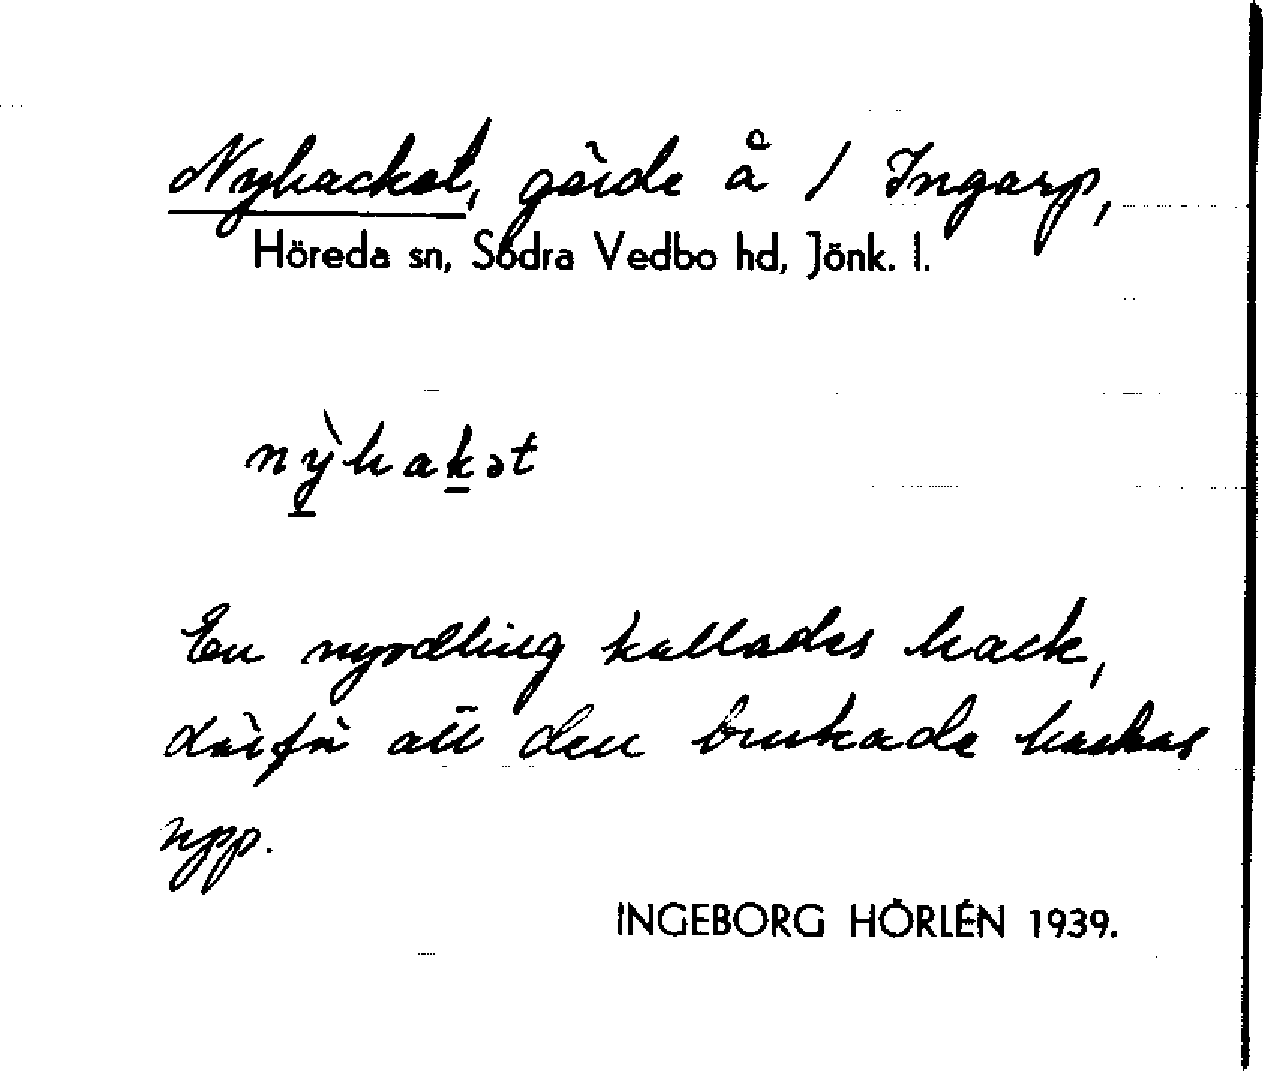 Nyhacket, gärde å / Ingarp,
Höreda sn, Södra Vedbo hd, Jönk. l.
nỳhakət
En nyodling kallades hack,
därför att den brukade hackas
upp.
INGEBORG HÖRLÉN 1939.